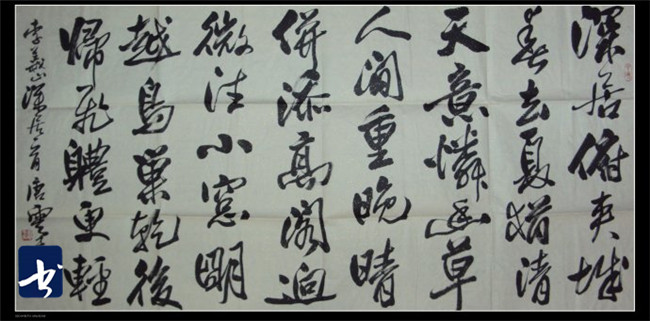 深居俯夾城
春去夏猶清
天意憐幽草
人間重晚晴
併添高閣迥
微注小窓明
越鳥巢乾後
歸飛體更輕
李義山深居一首 唐雲
书